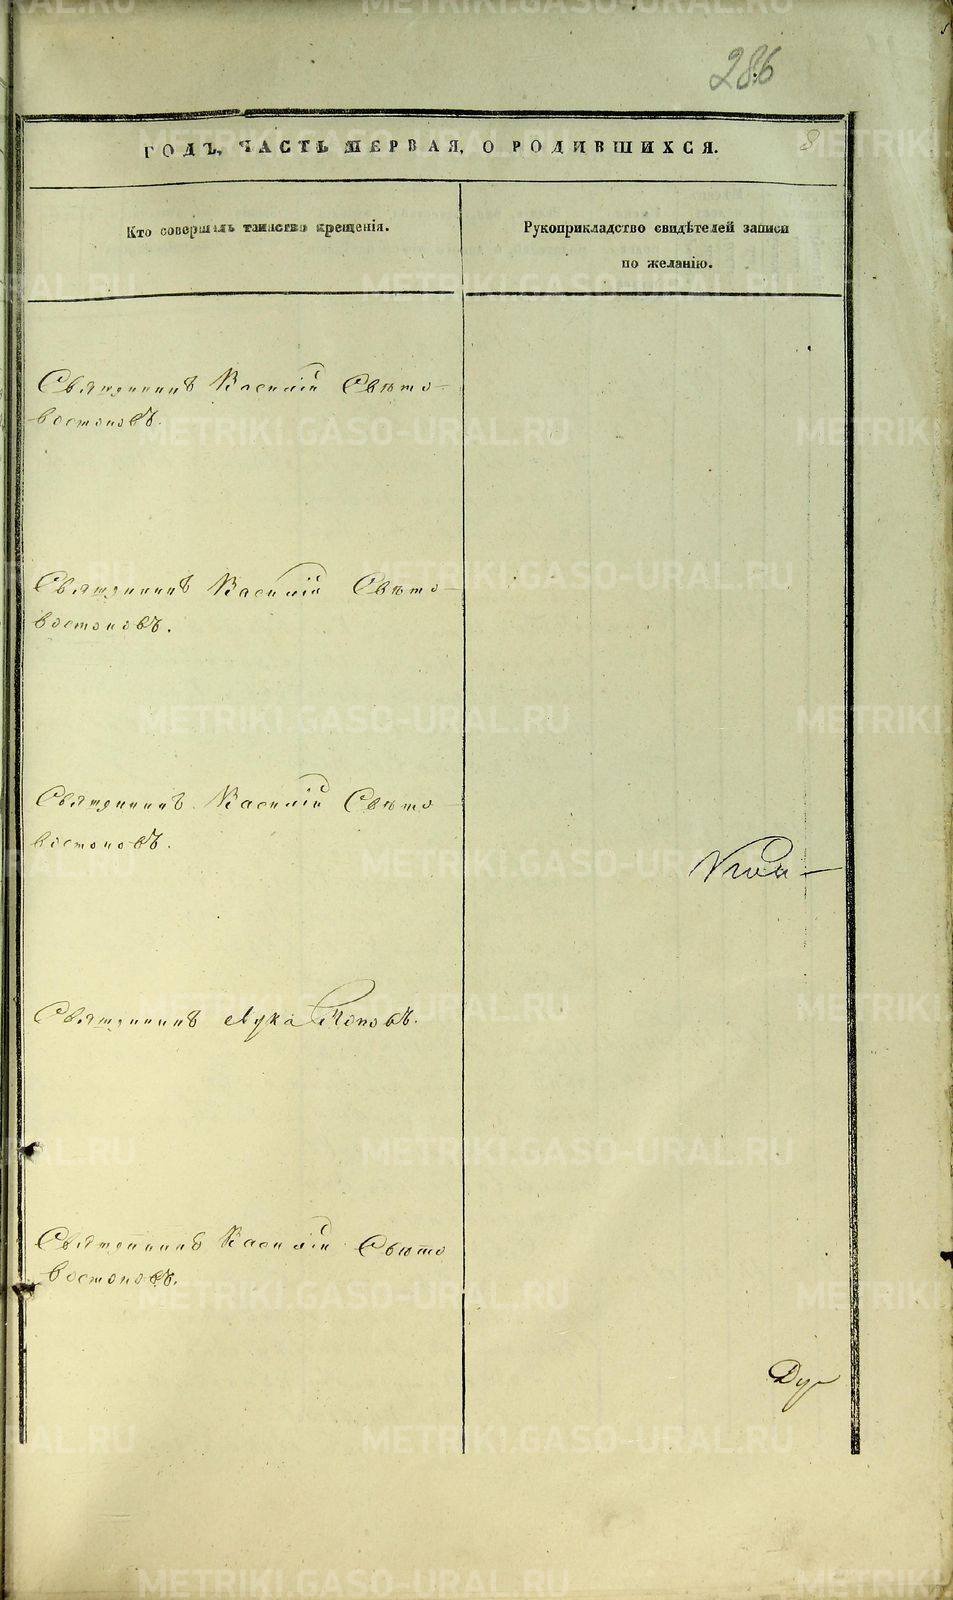 286
ГОДЪ, ЧАСТЬ ПЕРВАЯ, О РОДИВШИХСЯ.
8
Кто совершалъ таинство крещенія.
Рукоприкладство свидѣтелей записи
по желанію.
Священникъ Василій Свѣто-
востоковъ.
Священникъ Василій Свѣто-
востоковъ.
Священникъ Василій Свѣто-
востоковъ.
Священникъ Лука Поповъ.
Священникъ Василій Свѣто
востоковъ.
METRIKI.GASO-URAL.RU